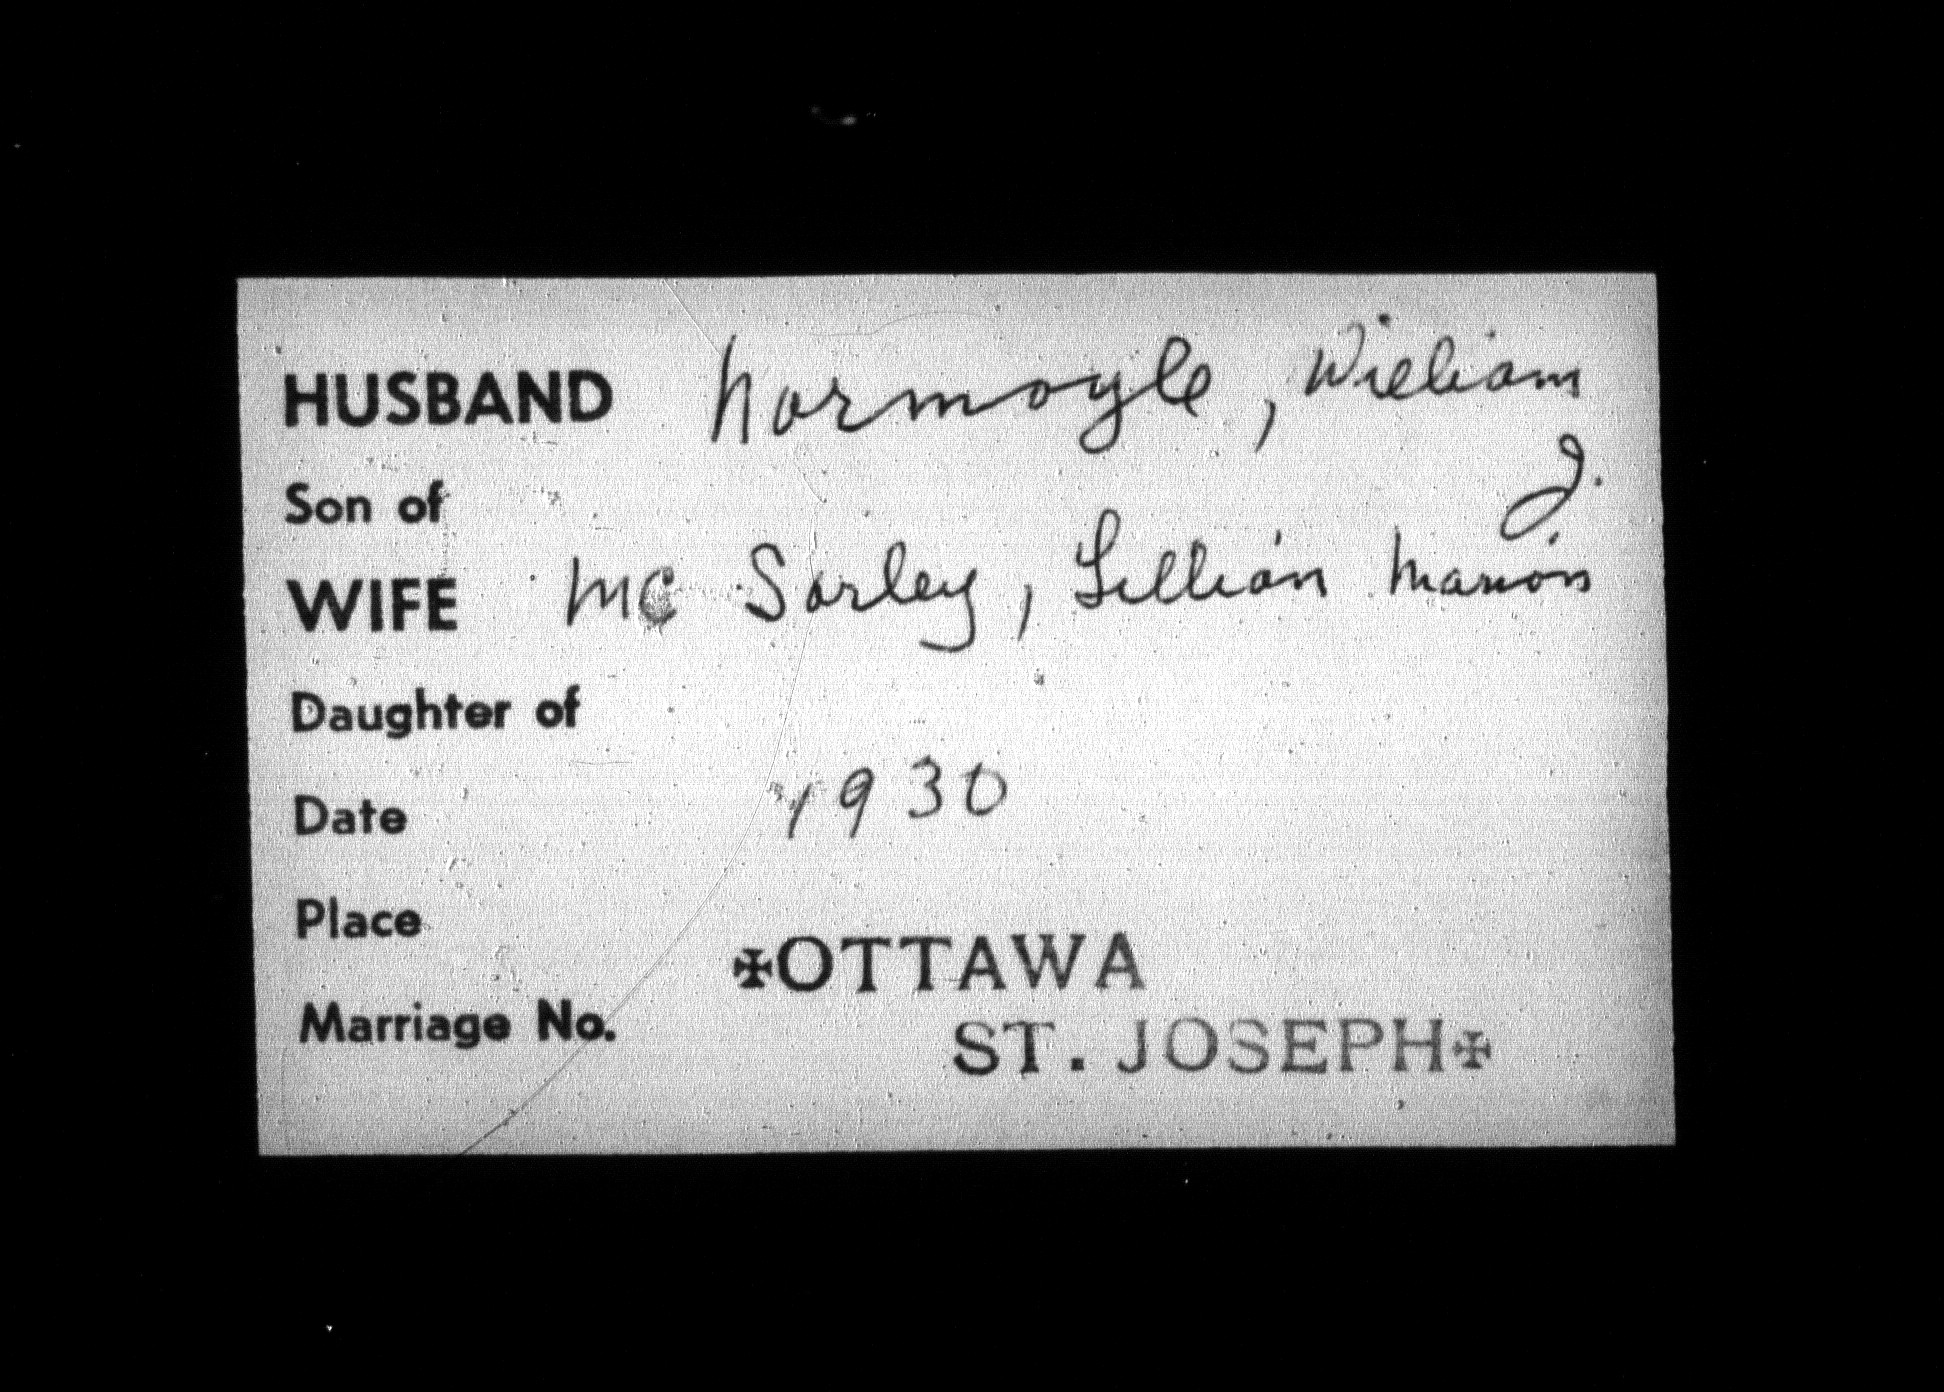 HUSBAND Normoyle, William
J.
Son of
WIFE Mc Sorley, Lillian Marion
Daughter of
Date 1930
Place
✠OTTAWA
Marriage No.
ST. JOSEPH✠